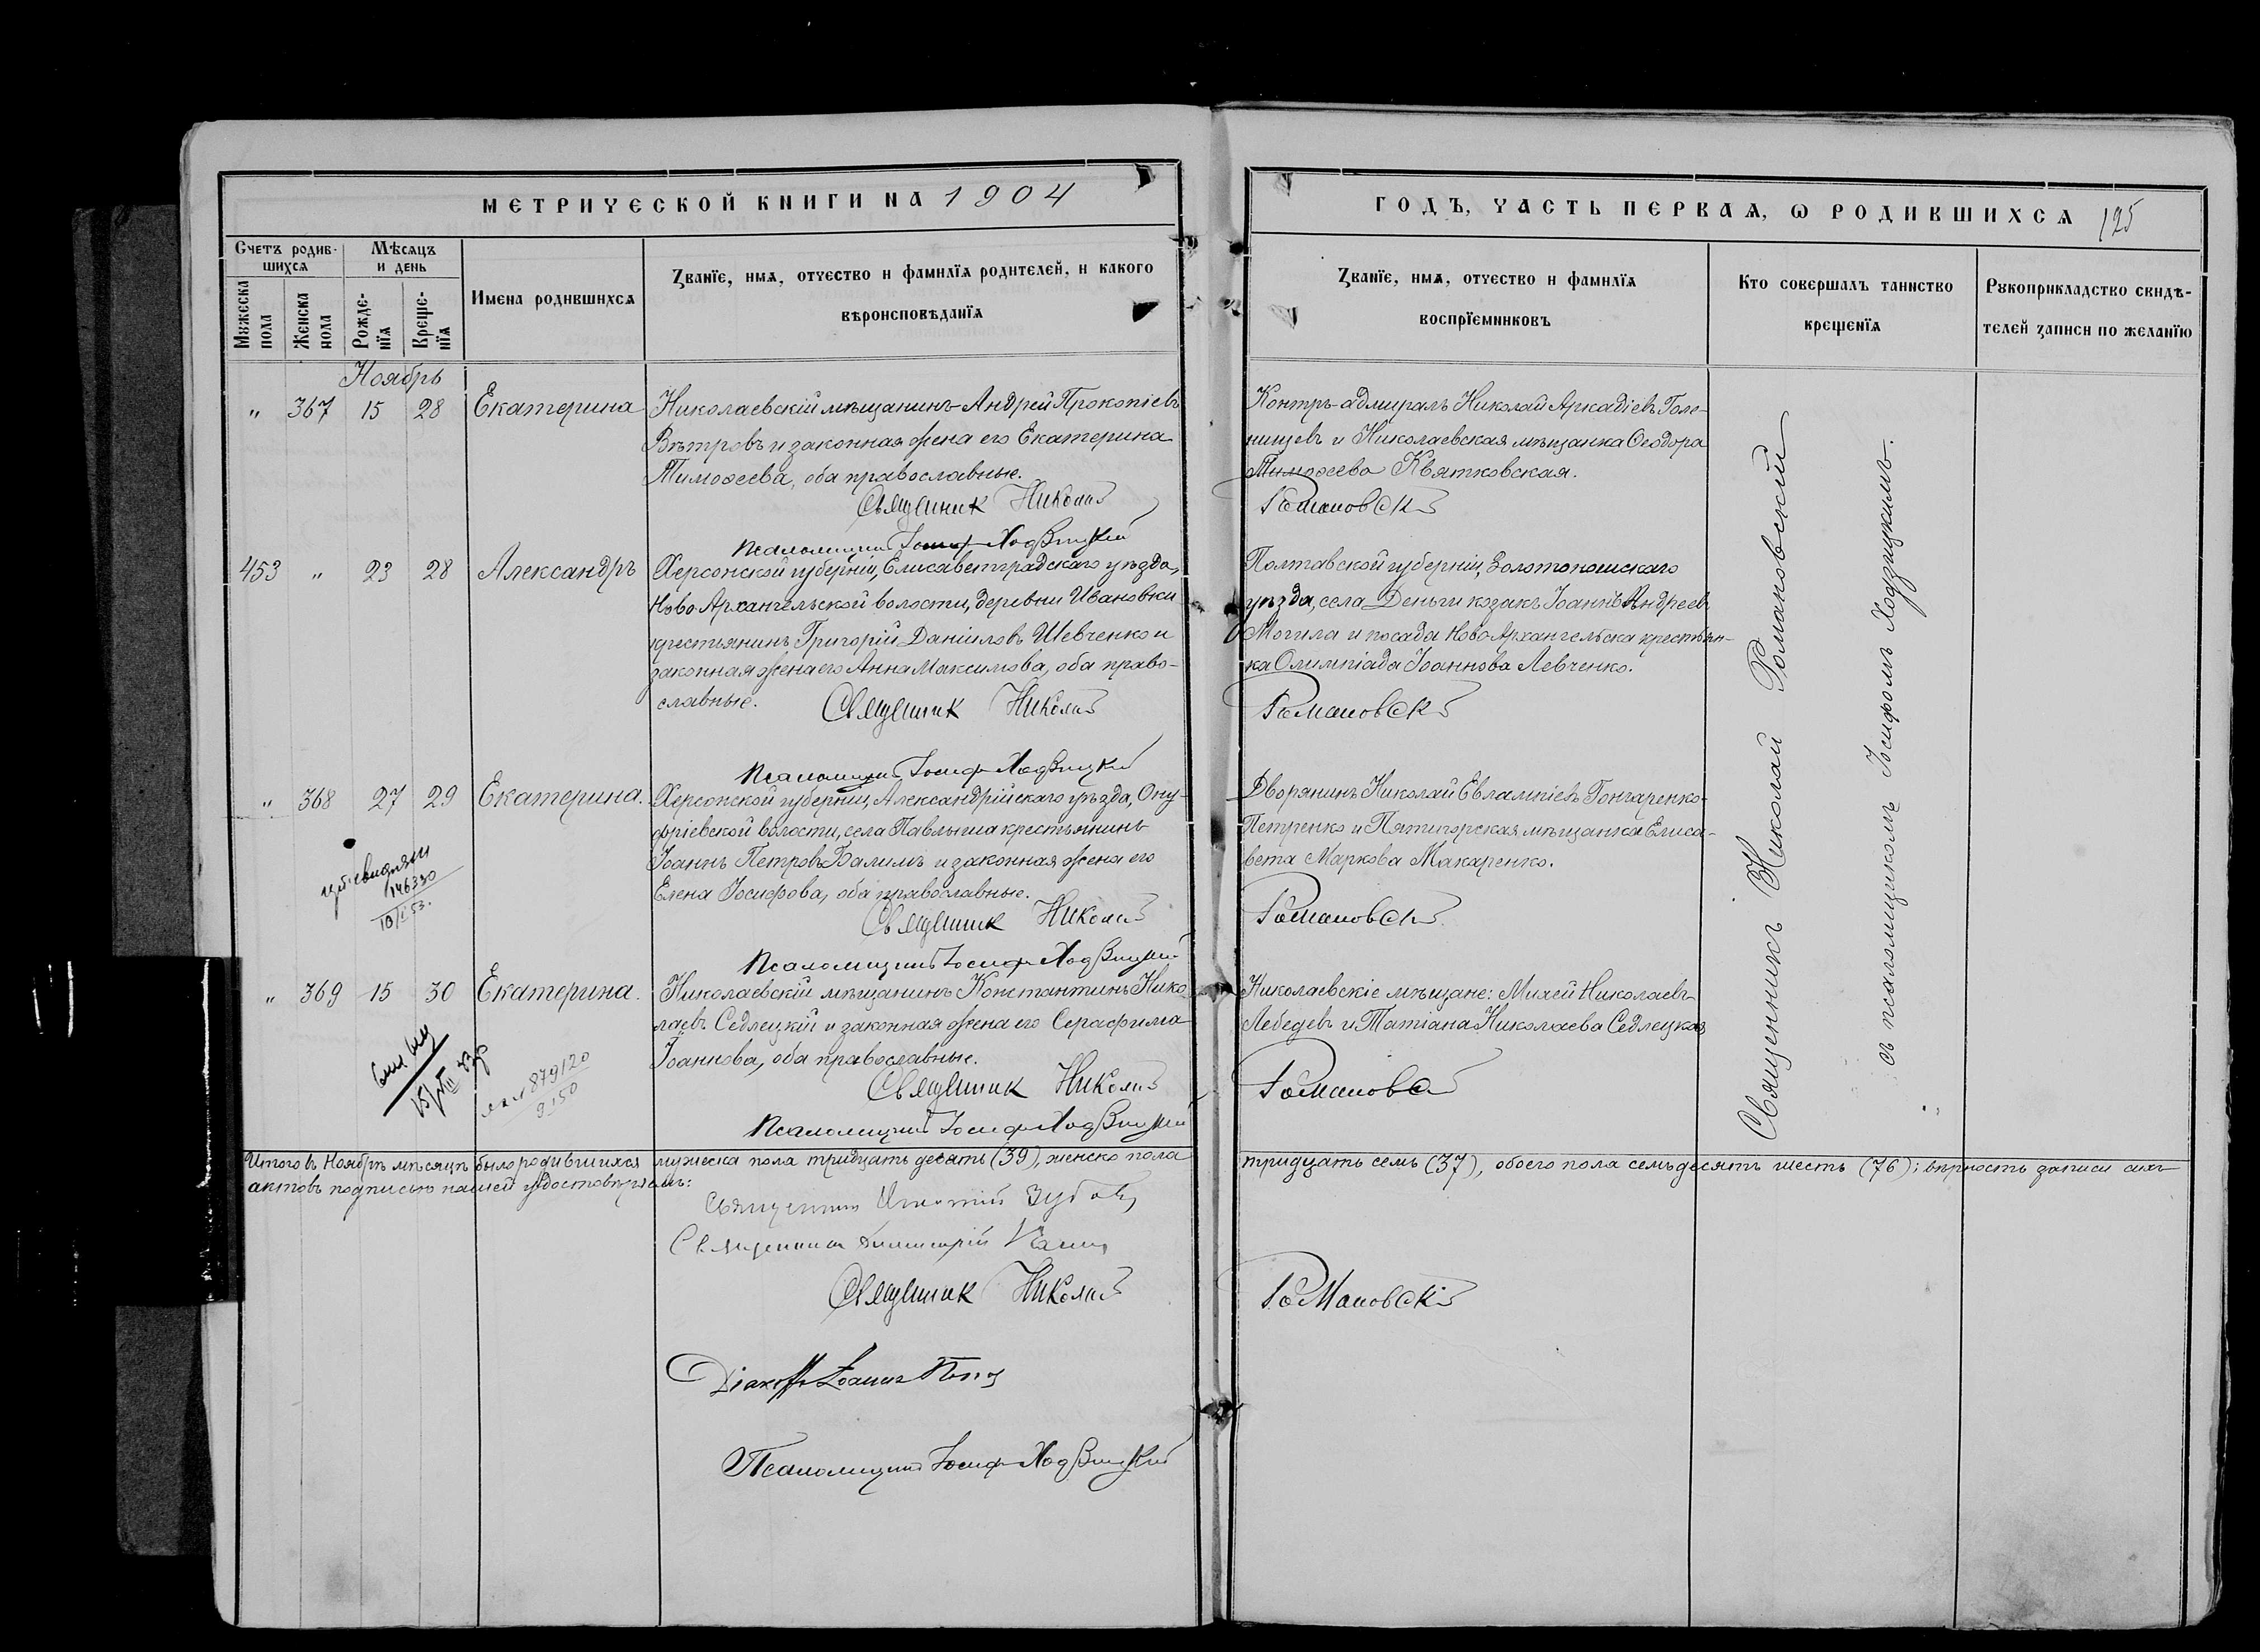 МЕТРИЧЕСКОЙ КНИГИ НА 1904
ГОДЪ, ЧАСТЬ ПЕРВАѦ, Ѡ РОДИВШИХСѦ 125
Счетъ родив-
шихсѧ
Мѣсѧцъ
и день
Мꙋжеска
пола
Женска
пола
Рожде-
нїѧ
Креще-
нїѧ
Имена родившихсѧ
Званїе, имѧ, отчество и фамилїѧ родителей, и какого
вѣроисповѣданїѧ
Званїе, имѧ, отчество и фамилїѧ
воспрїемниковъ
Кто совершалъ таинство
крещенїѧ
Рꙋкоприкладство свидѣ-
телей записи по желанїю
Ноябрь
" 367 15 28 Екатерина
Николаевскій мѣщанинъ Андрей Прокопіевъ
Вѣтровъ и законная жена его Екатерина
Тимоѳеева, оба православные.
Священник Николай
Псаломщик Іосиф Ходзицкий
Контръ-адмиралъ Николай Аркадіевъ Голе-
нищевъ и Николаевская мѣщанка Ѳеодора
Тимоѳеева Квятковская.
Романовскій
453 " 23 28 Александръ
Херсонской губерніи, Елисаветградскаго уѣзда,
Ново Архангельской волости, деревни Ивановки
крестьянинъ Григорій Даніиловъ Шевченко и
законная жена его Анна Максимова, оба право-
славные.
Священник Николай
Псаломщик Іосиф Ходзицкий
Полтавской губерніи, Золотоношскаго
уѣзда, села Деньги козакъ Іоаннъ Андреевъ
Могила и посада Ново Архангельска крестьян-
ка Олимпіада Іоаннова Левченко.
Романовскій
" 368 27 29 Екатерина.
Херсонской губерніи, Александрійскаго уѣзда, Ону-
фріевской волости, села Павлыша крестьянинъ
Іоаннъ Петровъ Балимъ и законная жена его
Елена Іосифова, оба православные.
Священник Николай
Псаломщик Іосиф Ходзицкий
Дворянинъ Николай Евлампіевъ Гончаренко-
Петренко и Пятигорская мѣщанка Елиса-
вета Маркова Макаренко.
Романовскій
146330
" 369 15 30 Екатерина.
Николаевскій мѣщанинъ Константинъ Нико-
лаевъ Седлецкій и законная жена его Серафима
Іоаннова, оба православные.
Священник Николай
Псаломщик Іосиф Ходзицкий
Николаевскіе мѣщане: Михей Николаевъ
Лебедевъ и Татіана Николаева Седлецкая
Романовскій
879120
Священникъ Николай Романовскій
съ псаломщикомъ Іосифомъ Ходзицкимъ.
Итого въ Ноябрѣ мѣсяцѣ было родившихся мужеска пола тридцать девять (39), женска пола
тридцать семь (37), обоего пола семьдесятъ шесть (76); вѣрность записи сихъ
актовъ подписью нашей удостовѣряемъ:
Священник Игнатій
Священник Димитрій
Священник Николай
Романовскій
Діаконъ Іоанн
Псаломщик Іосиф Ходзицкий